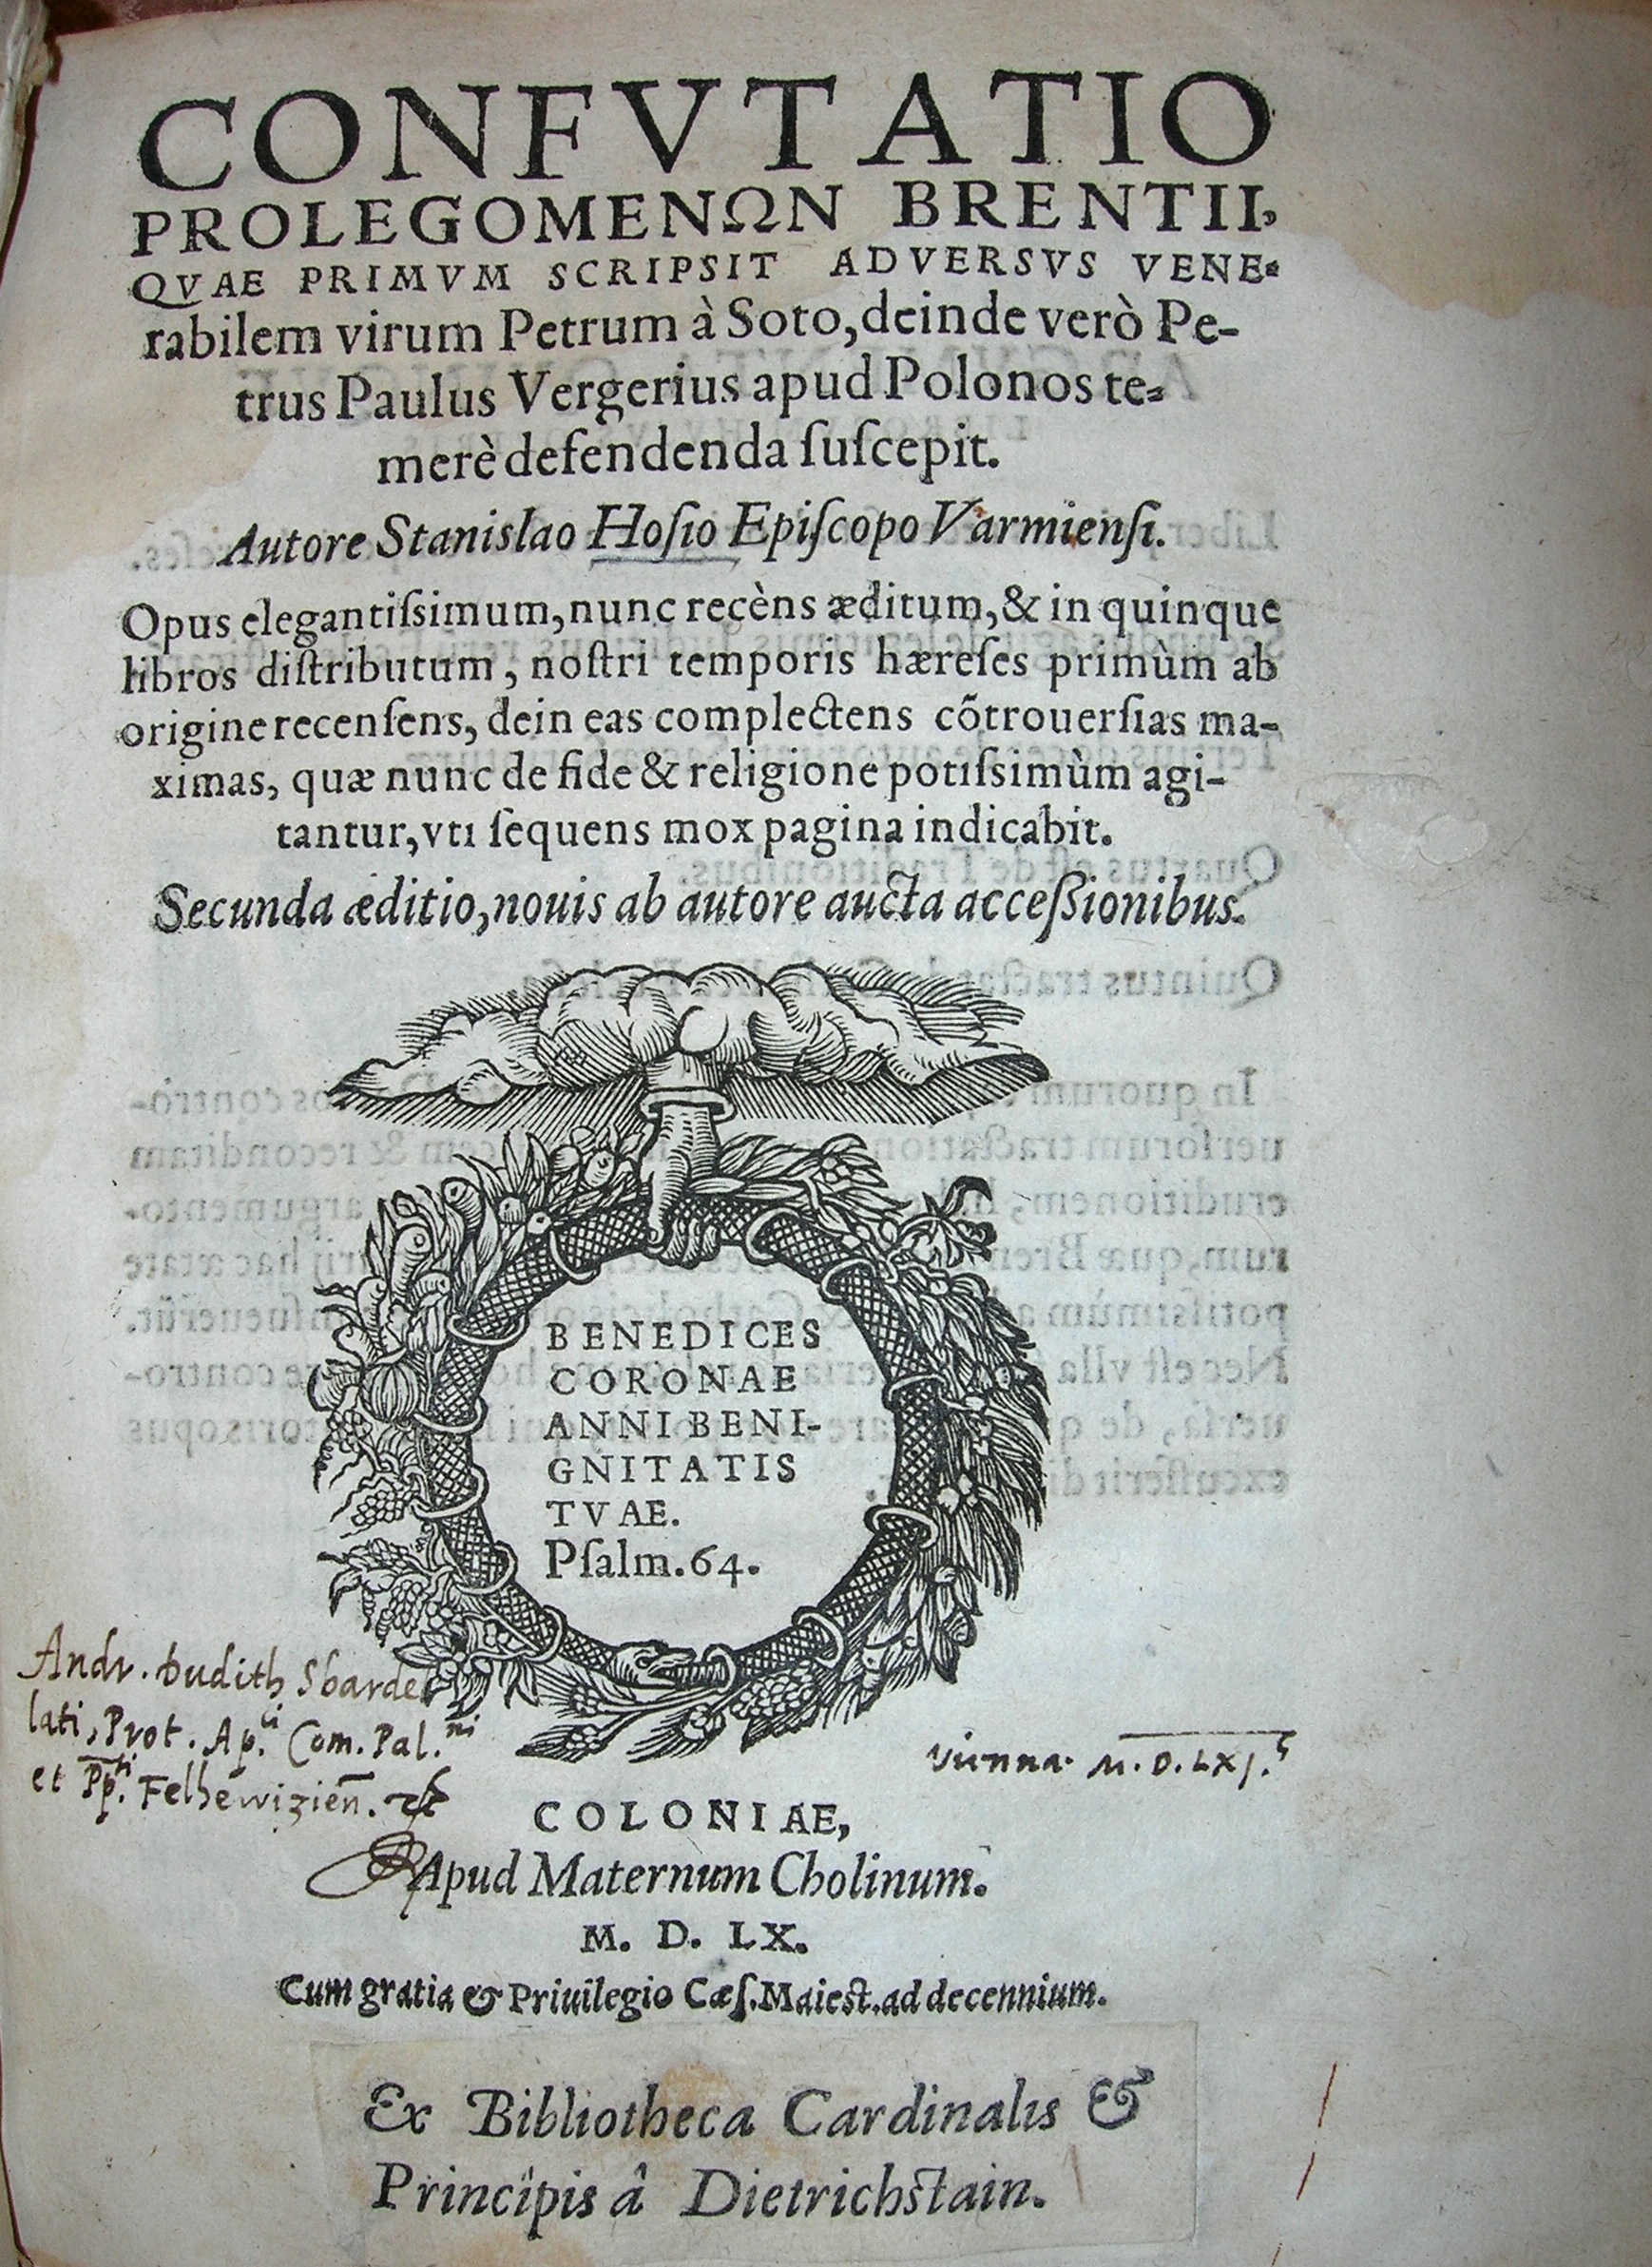 CONFVTATIO
PROLEGOMENΩN BRENTII,
QVAE PRIMVM SCRIPSIT ADVERSVS VENE-
rabilem virum Petrum à Soto, deinde verò Pe-
trus Paulus Vergerius apud Polonos te-
merè defendenda ſuſcepit.
Autore Stanislao Hoſio Epiſcopo Varmienſi.
Opus elegantiſsimum, nunc recèns æditum, & in quinque
libros diſtributum, noſtri temporis hæreſes primùm ab
origine recenſens, dein eas complectens cõtrouerſias ma-
ximas, quæ nunc de fide & religione potiſsimùm agi-
tantur, vti ſequens mox pagina indicabit.
Secunda æditio, nouis ab autore aucta acceſsionibus.
BENEDICES
CORONAE
ANNI BENI-
GNITATIS
TVAE.
Pſalm. 64.
Andr. Dudith Sbardel
lati, Prot. Ap.ci Com. Pal.ni
et Pp.ti Felhewizień. &c
Vienna. M.D.LXI.
COLONIAE,
Apud Maternum Cholinum.
M. D. LX.
Cum gratia & Priuilegio Cæſ. Maieſt. ad decennium.
Ex Bibliotheca Cardinalis &
Principis â Dietrichſtain.